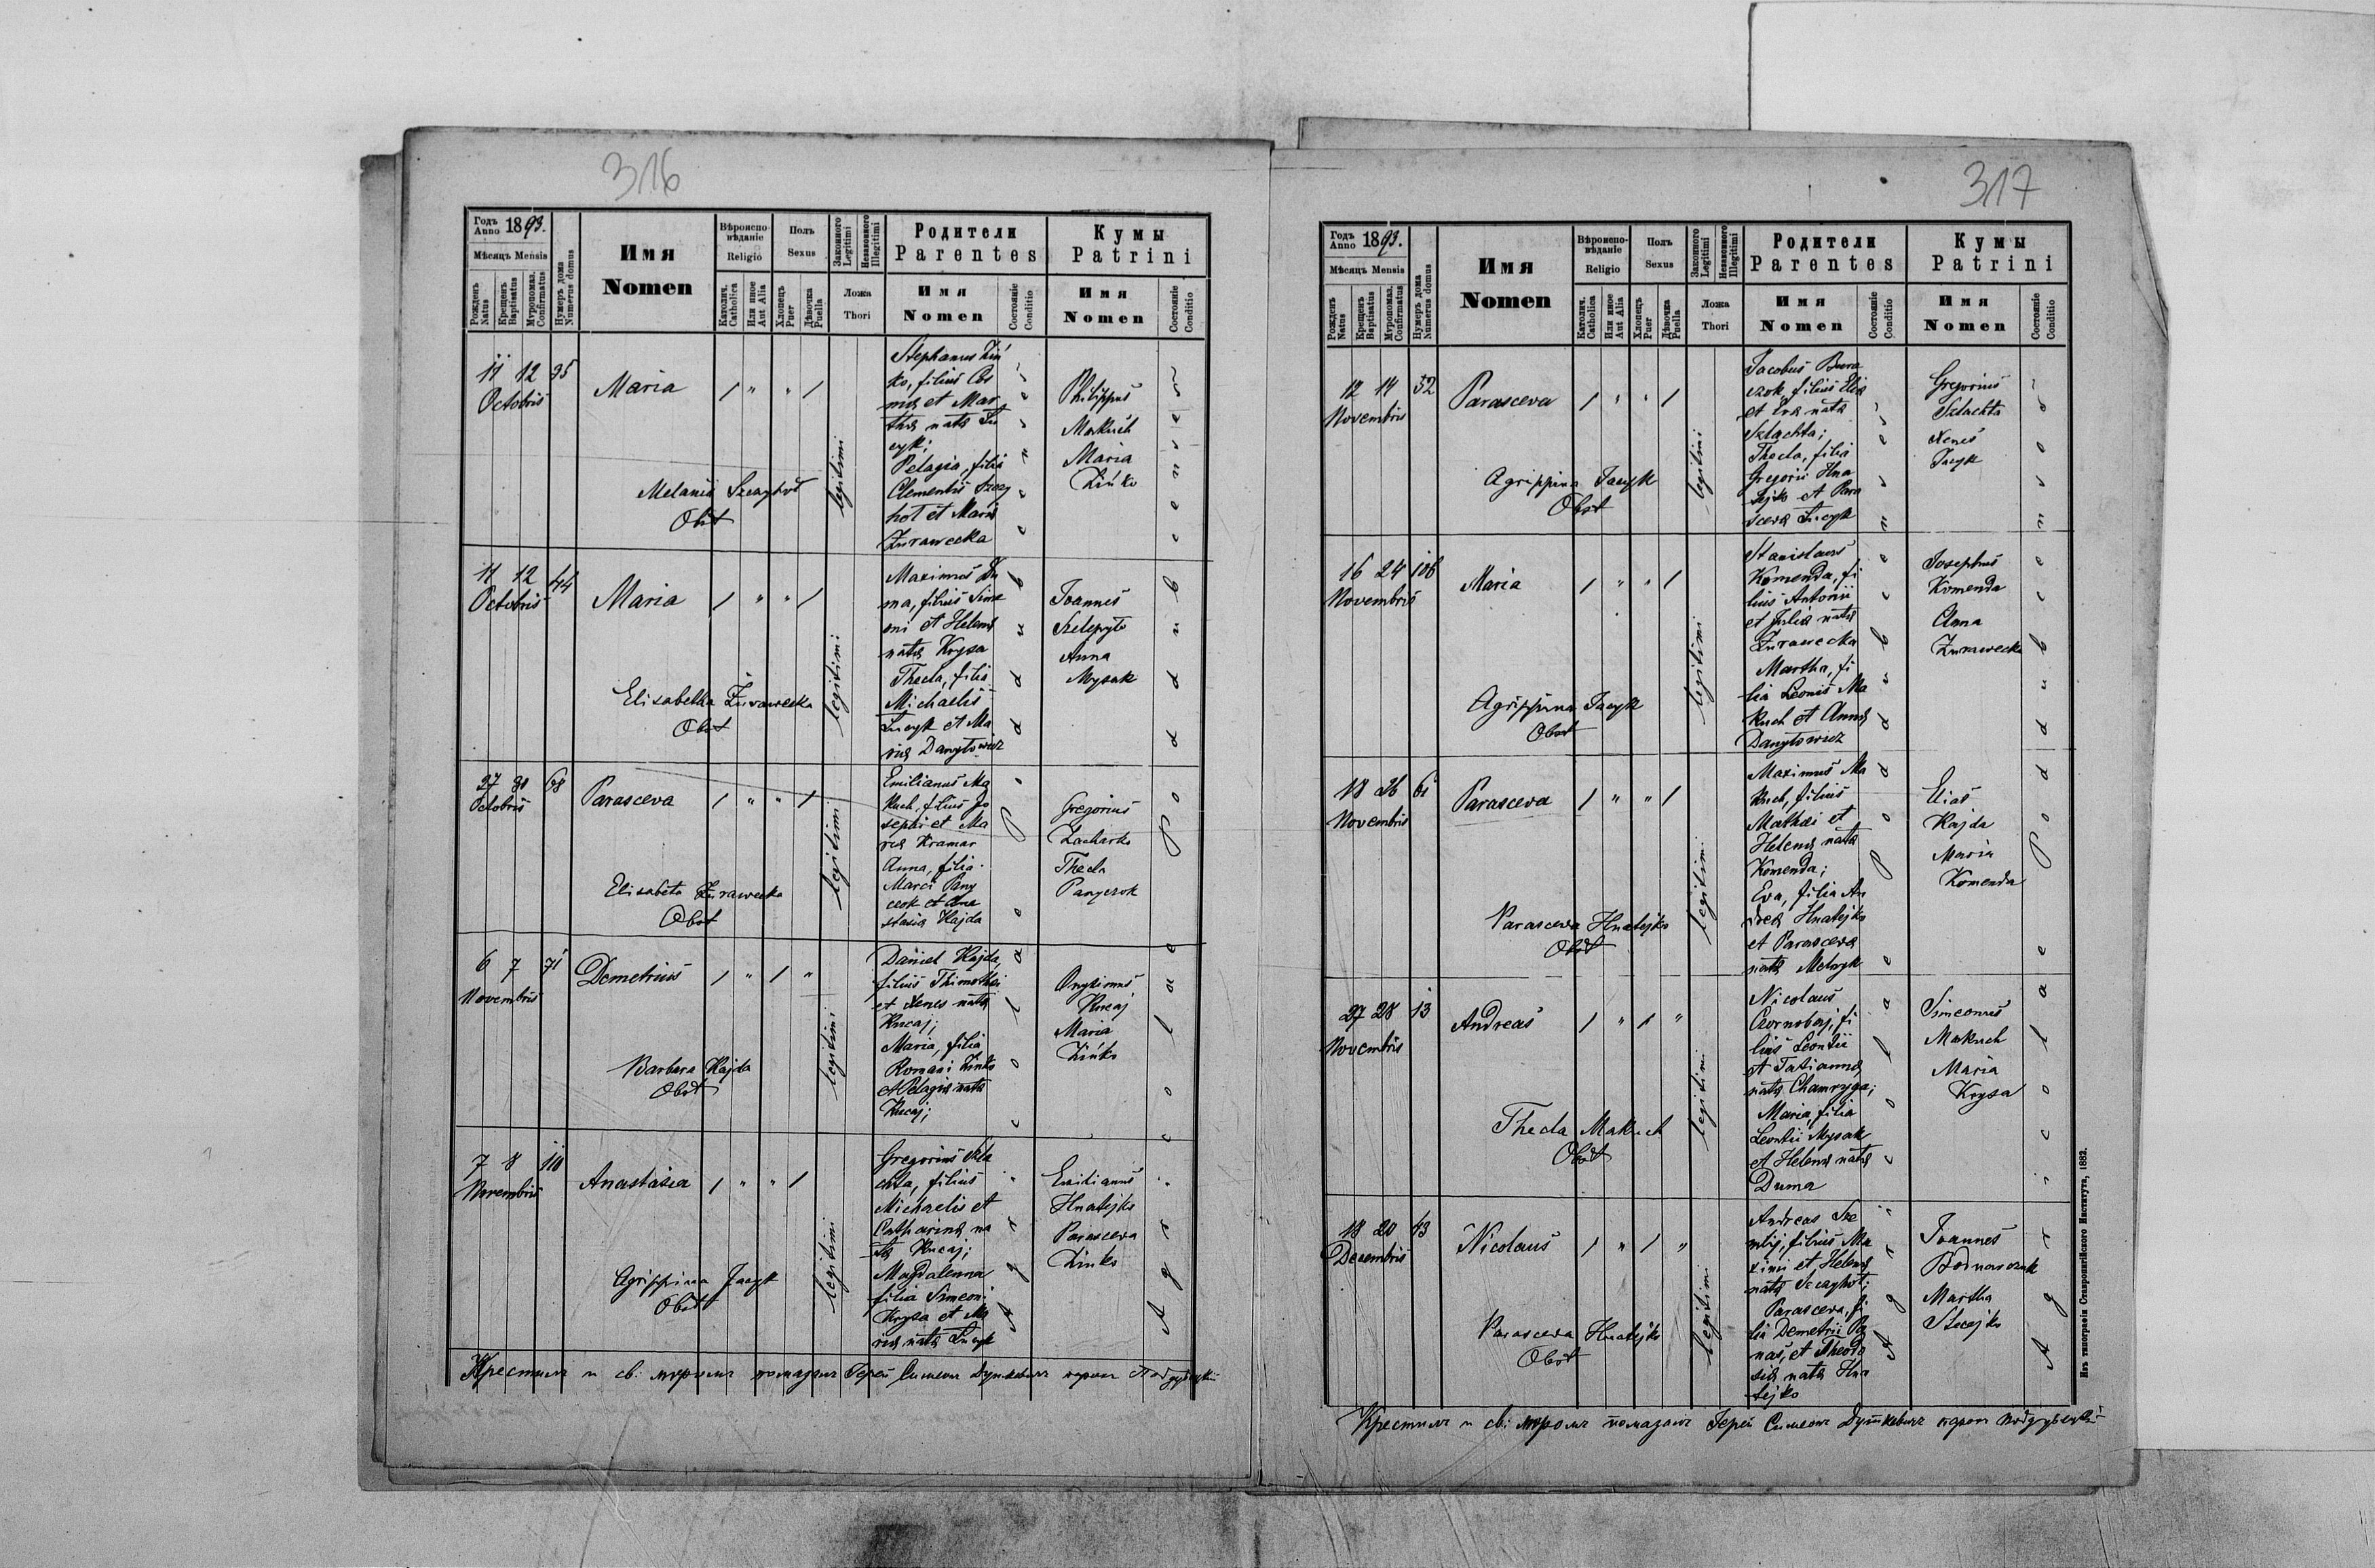 316
Годъ Anno 1893.
Мѣсяцъ Mensis
Рожденъ Natus
Крещенъ Baptisatus
Мѵропомаз. Confirmatus
Нумеръ дома Numerus domus
Имя
Nomen
Вѣроиспо-
вѣданіе
Religio
Католич. Catholica
Или иное Aut Alia
Полъ
Sexus
Хлопецъ Puer
Дѣвочка Puella
Законного Legitimi
Незаконного Illegitimi
Ложа
Thori
Родители
Parentes
Имя
Nomen
Состояніе Conditio
Кумы
Patrini
Имя
Nomen
Состояніе Conditio
11 12 95
Octobris
Maria
Melania Szczyhoł
Obst
legitimi
Stephanus Zin
ko, filius Cos
mæ et Mar
thæ natæ Łu
cyk;
Pelagia, filia
Clementis Szczy
hoł et Mariæ
Żurawecka
Philippus
Makuch
Maria
Zińko
11 12 44
Octobris
Maria
Elisabetha Żurawecka
Obst
legitimi
Maximus Du
ma, filius Sime
oni et Helenæ
natæ Krysa
Thecla, filia
Michaelis
Łucyk et Ma
riæ Danyłowicz
Joannes
Szelepyło
Anna
Mysak
27 31 68
Octobris
Parasceva
Elisabeta Żurawecka
Obst
legitimi
Emilianus Ma
kuch, filius Jo
sephi et Ma
riæ Kramar
Anna, filia
Marci Pany
czok et Ana
stasiæ Hajda
Gregorius
Zacharko
Thecla
Panyczok
6 7 71
Novembris
Demetrius
Barbara Hajda
Obst
legitimi
Daniel Hajda,
filius Thimothei
et Xenes natæ
Kucaj;
Maria, filia
Romani Zinko
et Pelagiæ natæ
Kucaj;
Onysimus
Kucaj
Maria
Zińko
7 8 110
Novembris
Anastasia
Agrippina Jacyk
Obst
legitimi
Gregorius Szla
chta, filius
Michaelis et
Catharinæ na
tæ Kucaj;
Magdalenna
filia Simeoni
Krysa et Ma
riæ natæ Łucyk
Emilianus
Hnatejko
Parasceva
Zinko
Agricolae Podduben­ses
Крестилъ и св. мѵромъ помазалъ Іерей Симеонъ Дуткевичъ парохъ Поддубецкій
317
Годъ Anno 1893.
Мѣсяцъ Mensis
Рожденъ Natus
Крещенъ Baptisatus
Мѵропомаз. Confirmatus
Нумеръ дома Numerus domus
Имя
Nomen
Вѣроиспо-
вѣданіе
Religio
Католич. Catholica
Или иное Aut Alia
Полъ
Sexus
Хлопецъ Puer
Дѣвочка Puella
Законного Legitimi
Незаконного Illegitimi
Ложа
Thori
Родители
Parentes
Имя
Nomen
Состояніе Conditio
Кумы
Patrini
Имя
Nomen
Состояніе Conditio
12 14 52
Novembris
Parasceva
Agrippina Jacyk
Obst
legitimi
Jacobus
czok, filius Eliæ
et Evæ natæ
Szlachta;
Thecla, filia
Gregorii Hna
tejko et Para
scevæ Łucyk
Gregorius
Szlachta
Xenes
Jacyk
16 24 108
Novembris
Maria
Agrippina Jacyk
Obst
legitimi
Stanislaus
Komenda, fi
lius Antonii
et Juliæ natæ
Żurawecka
Martha, fi
lia Leonis Ma
kuch et Annæ
Danyłowicz
Josephus
Komenda
Anna
Żurawecka
18 26 61
Novembris
Parasceva
Parasceva Hnatejko
Obst
legitimi
Maximus Ma
kuch, filius
Mathæi et
Helenæ natæ
Komenda;
Eva, filia An
dreæ Hnatejko
et Parascevæ
natæ Melnyk
Elias
Hajda
Maria
Komenda
27 28 13
Novembris
Andreas
Thecla Makuch
Obst
legitimi
Nicolaus
Czornobaj, fi
lius Leontii
et Tatiannæ
natæ Chamryga;
Maria, filia
Leontii Mysak
et Helenæ natæ
Duma
Simeonus
Makuch
Maria
Krysa
18 20 43
Decembris
Nicolaus
Parasceva Hnatejko
Obst
legitimi
Andreas Sze
mlij, filius Ma
ximi et Helenæ
natæ Szczyhoł;
Parasceva, fi
lia Demetrii Pa
nas, et Theodo
siæ natæ Hna
tejko
Joannes
Bodnarczuk
Martha
Stecejko
Крестилъ и св. мѵромъ помазалъ Іерей Симеонъ Дуткевичъ парохъ Поддубецкій
Изъ типографіи Ставропигійского Института, 1882.